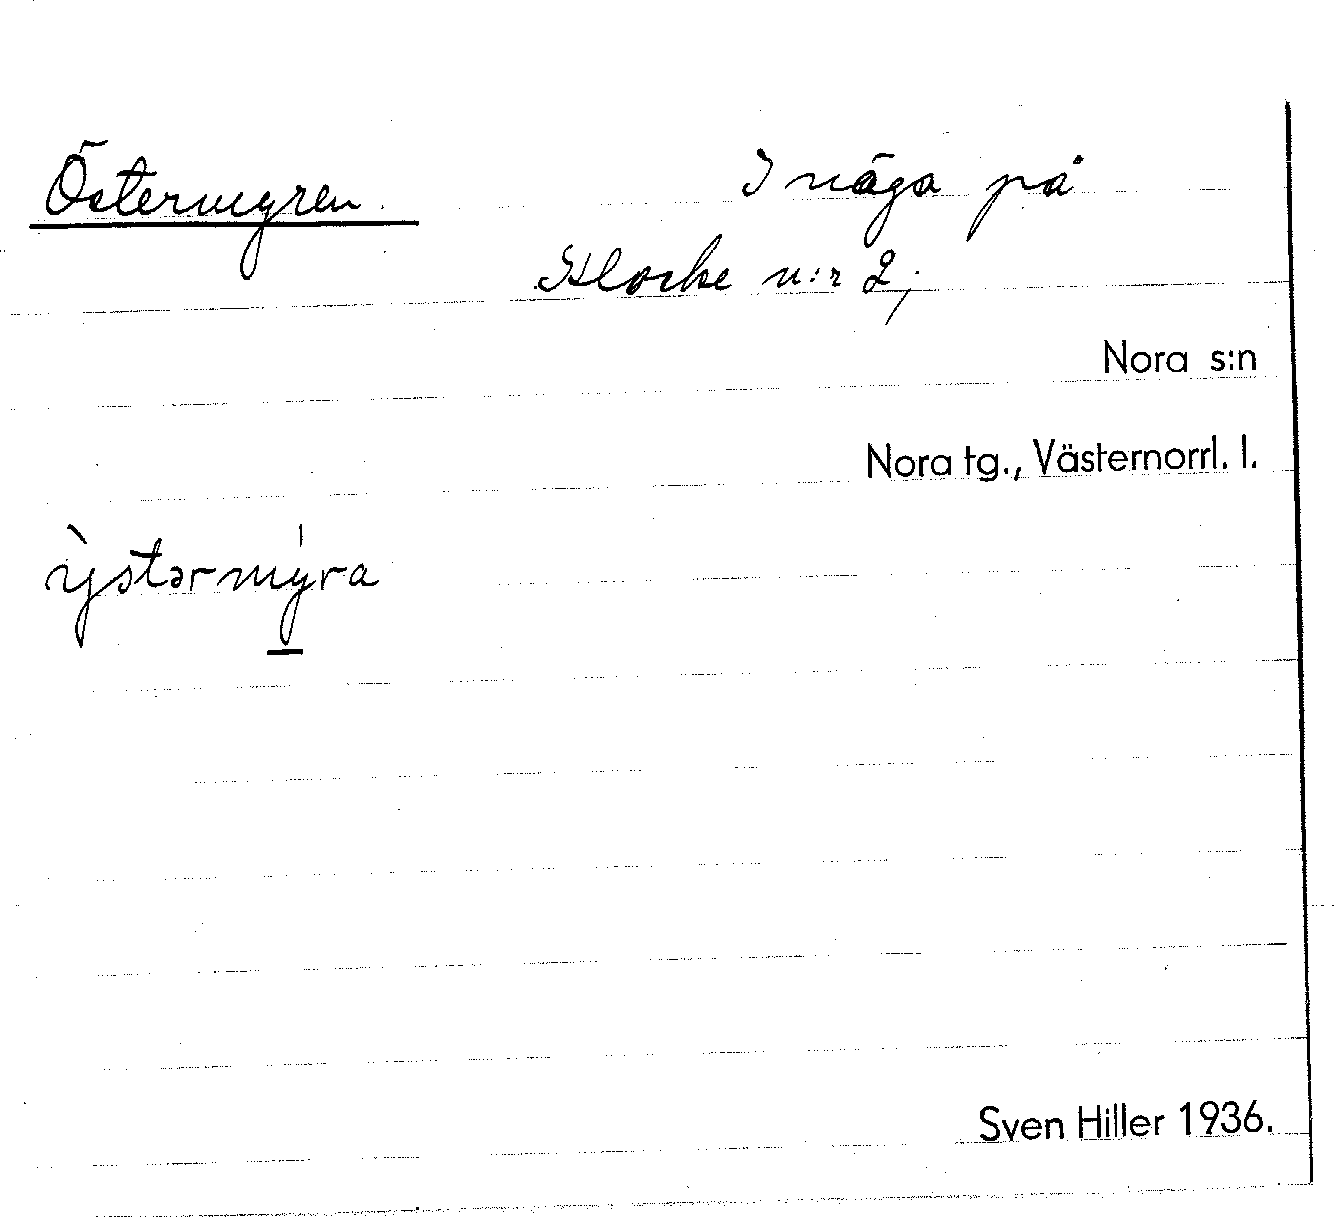 Östermyren.
Inäga på
Klocke n:r 2,
Nora s:n
Nora tg., Västernorrl. l.
ỳstərmýra
Sven Hiller 1936.